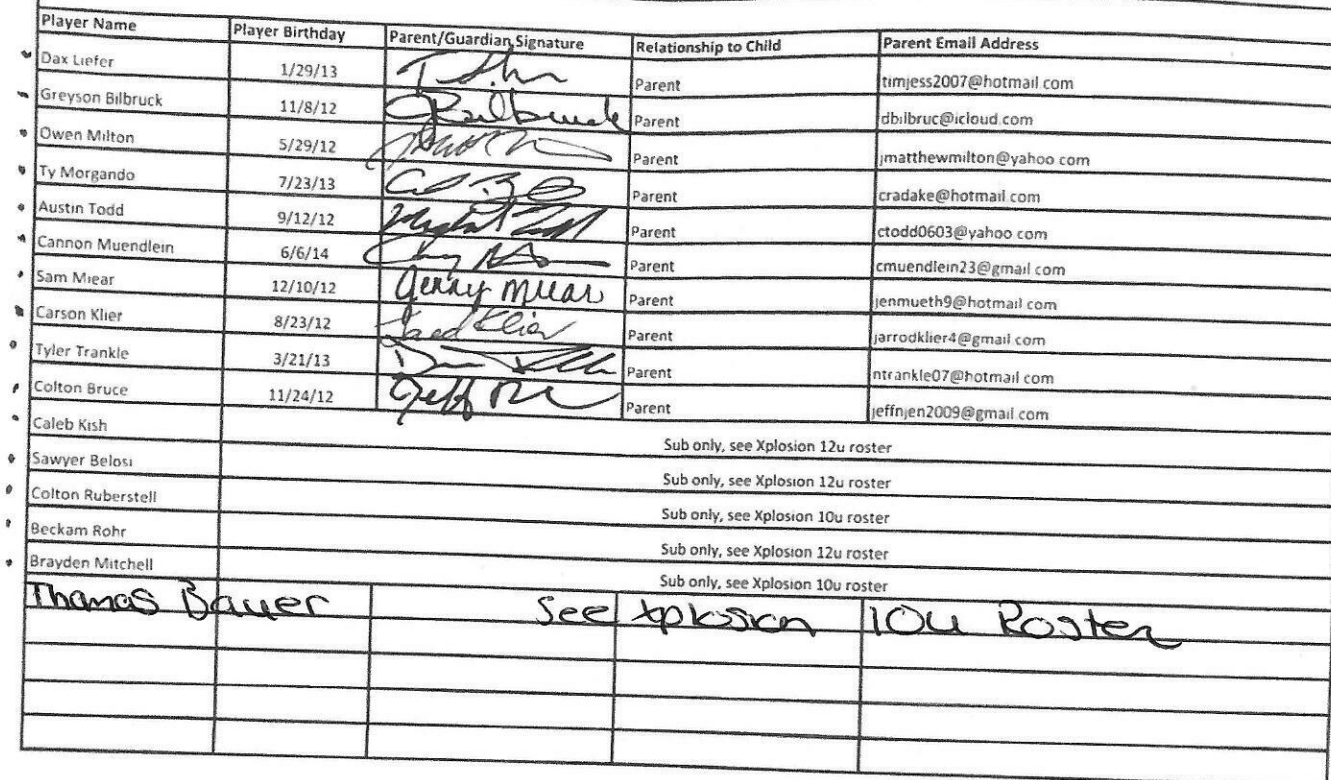 Player Name Player Birthday Parent/Guardian Signature Relationship to Child Parent Email Address
Dax Liefer 1/29/13 Parent timjess2007@hotmail.com
Greyson Bilbruck 11/8/12 Parent dbilbruc@icloud.com
Owen Milton 5/29/12 Parent jmatthewmilton@yahoo.com
Ty Morgando 7/23/13 Parent cradake@hotmail.com
Austin Todd 9/12/12 Parent ctodd0603@yahoo.com
Cannon Muendlein 6/6/14 Parent cmuendlein23@gmail.com
Sam Miear 12/10/12 Jenny Miear Parent jenmueth9@hotmail.com
Carson Klier 8/23/12 Jarod Klier Parent jarrodklier4@gmail.com
Tyler Trankle 3/21/13 Parent ntrankle07@hotmail.com
Colton Bruce 11/24/12 Jeff Parent jeffnjen2009@gmail.com
Caleb Kish Sub only, see Xplosion 12u roster
Sawyer Belosi Sub only, see Xplosion 12u roster
Colton Ruberstell Sub only, see Xplosion 10u roster
Beckam Rohr Sub only, see Xplosion 12u roster
Brayden Mitchell Sub only, see Xplosion 10u roster
Thomas Bauer See Xplosion 10u Roster